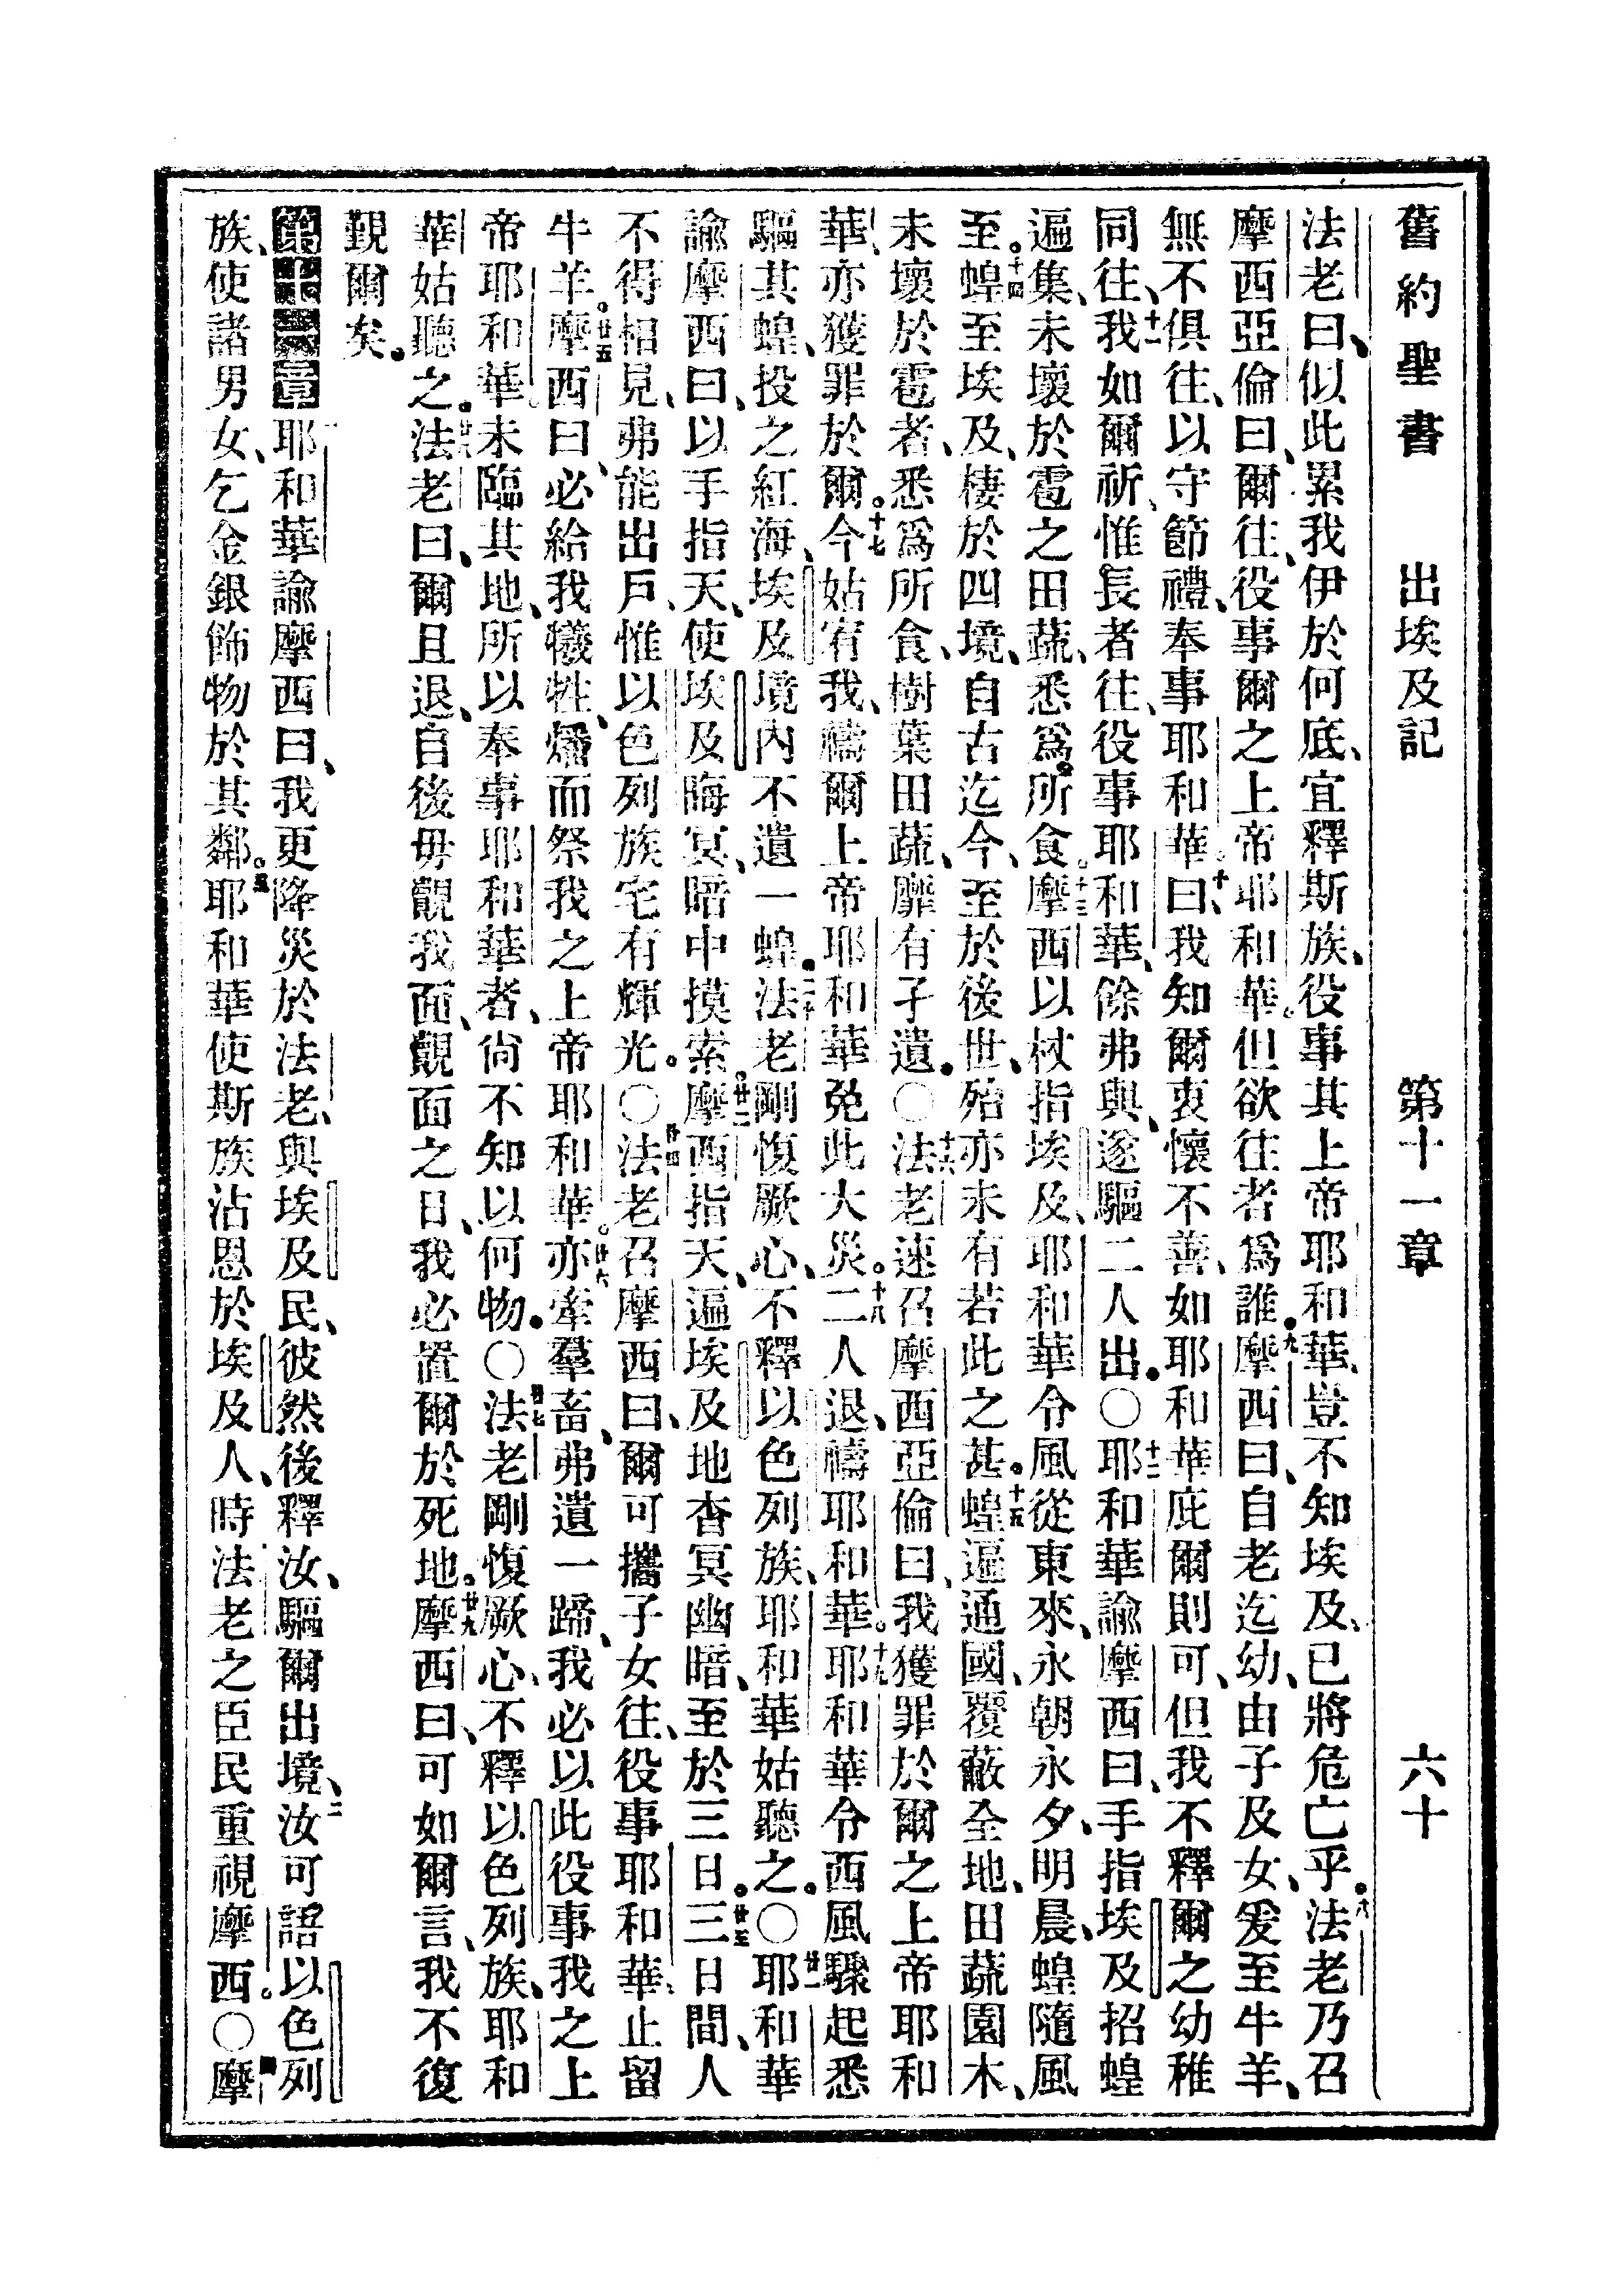 舊約聖書 出埃及記 第十一章 六十
法老曰、似此累我伊於何底、宜釋斯族、役事其上帝耶和華、豈不知埃及、已將危亡乎。八法老乃召
摩西亞倫曰、爾往、役事爾之上帝耶和華。但欲往者爲誰。九摩西曰、自老迄幼、由子及女、爰至牛羊、
無不俱往、以守節禮、奉事耶和華。十曰、我知爾衷懷不善、如耶和華庇爾則可、但我不釋爾之幼稚
同往、十一我如爾祈、惟長者往、役事耶和華、餘弗與、遂驅二人出。〇十二耶和華諭摩西曰、手指埃及招蝗
遍集、未壞於雹之田蔬、悉爲所食。十三摩西以杖指埃及、耶和華令風從東來、永朝永夕、明晨、蝗隨風
至。十四蝗至埃及、棲於四境、自古迄今、至於後世、殆亦未有若此之甚。十五蝗遍通國、覆蔽全地、田蔬園木、
未壞於雹者、悉爲所食、樹葉田蔬、靡有孑遺。〇十六法老速召摩西亞倫曰、我獲罪於爾之上帝耶和
華、亦獲罪於爾。十七今姑宥我、禱爾上帝耶和華免此大災。十八二人退、禱耶和華。十九耶和華令西風驟起悉
驅其蝗、投之紅海、埃及境內不遺一蝗。二十法老剛愎厥心、不釋以色列族、耶和華姑聽之。〇廿一耶和華
諭摩西曰、以手指天、使埃及晦冥、暗中摸索。廿二摩西指天、遍埃及地杳冥幽暗、至於三日。廿三三日間、人
不得相見、弗能出戶、惟以色列族宅有輝光。〇廿四法老召摩西曰、爾可攜子女往、役事耶和華、止留
牛羊。廿五摩西曰、必給我犧牲、燔而祭我之上帝耶和華。廿六亦牽羣畜、弗遺一蹄、我必以此役事我之上
帝耶和華。未臨其地、所以奉事耶和華者、尙不知以何物。〇廿七法老剛愎厥心、不釋以色列族、耶和
華姑聽之。廿八法老曰、爾且退、自後毋覿我面、覿面之日、我必置爾於死地。廿九摩西曰、可如爾言、我不復
覲爾矣。
第十一章耶和華諭摩西曰、我更降災於法老、與埃及民、彼然後釋汝、驅爾出境、二汝可語以色列
族、使諸男女、乞金銀飾物於其鄰。三耶和華使斯族沾恩於埃及人、時法老之臣民重視摩西。〇四摩